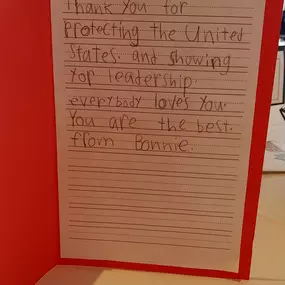 Thank You for
Protecting the United
States. and showing
yor leadership.
everybody loves You.
You are the best.
from Bonnie.